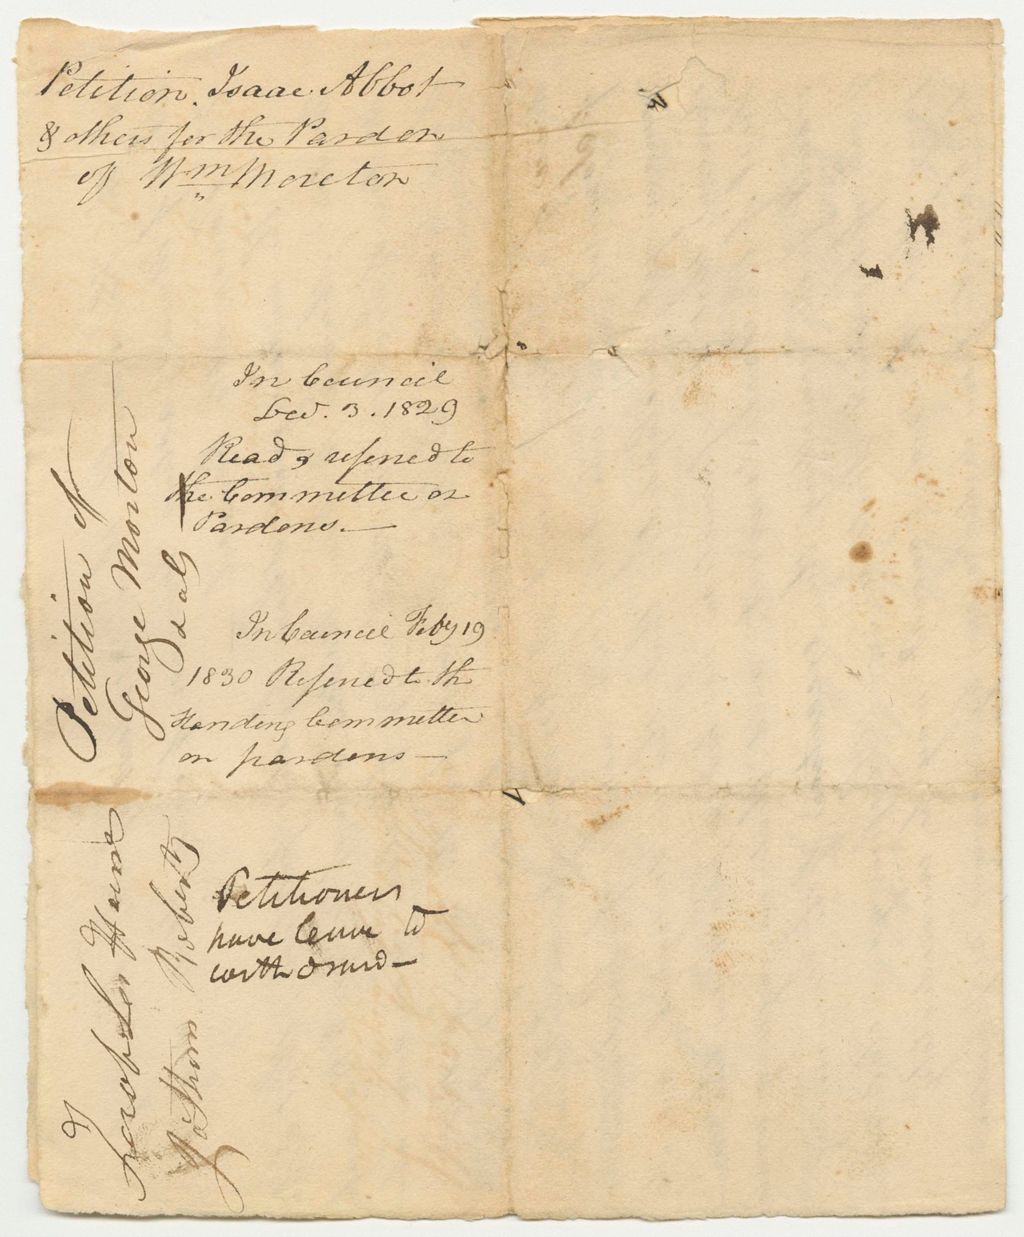 Petition, Isaac Abbot
& others for the Pardon
of Wm Moreton
In Council
Dec. 3. 1829
Read & refered to
the Committee on
Pardons.—
In Council Feby 19
1830 Refered to the
Standing Committee
on pardons—
Petitioners
have leave to
withdraw—
Petition of
George Morton
& als
Jotham Roberts